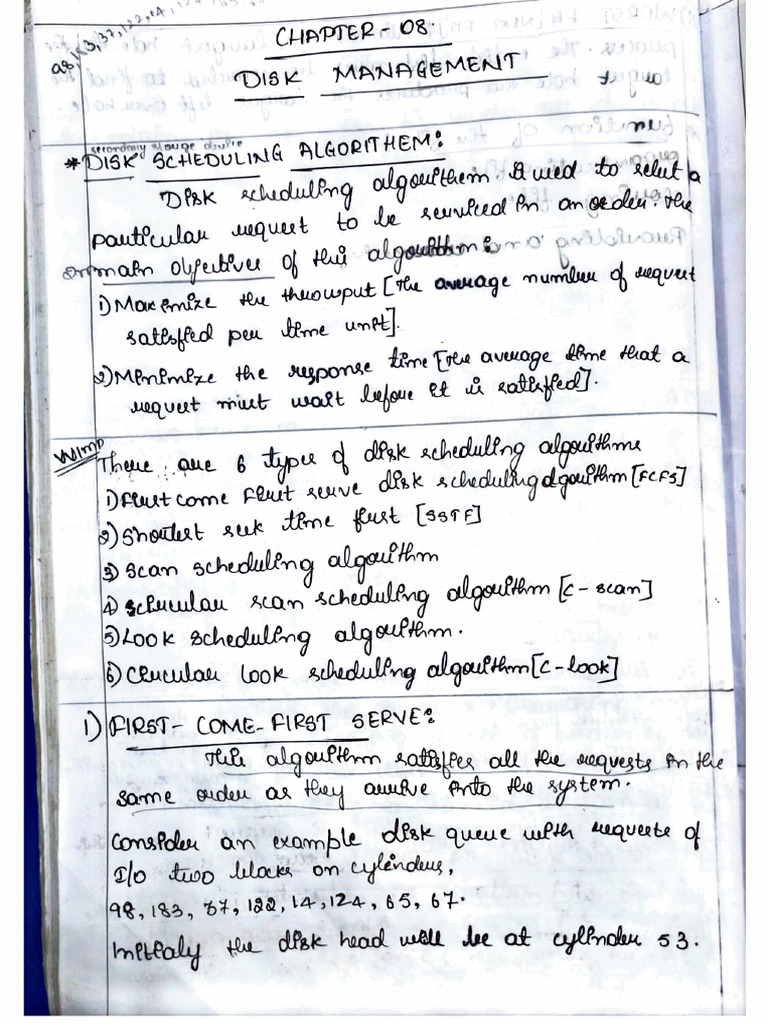 CHAPTER-08.
DISK MANAGEMENT
secondary storage device
* DISK SCHEDULING ALGORITHEM:
Disk scheduling algorithem. is used to select a
particular request to be serviced in an order. The
main objectives of this algorithm:
1) Maximize the throwput [The average number of request
satisfied per time unit].
2) Minimize the response time [The average time that a
request must wait before it is satisfied].
VVImp
There are 6 types of disk scheduling algorithms
1) First come First serve disk scheduling algorithm [FCFS]
2) Shortest seek time first [SSTF]
3) Scan scheduling algorithm
4) circular scan scheduling algorithm [C-scan]
5) Look scheduling algorithm.
6) Circular look scheduling algorithm [C-look]
1) FIRST- COME-FIRST SERVE:
This algorithm satisfies all the requests in the
same order as they arrive into the system.
Consider an example disk queue with requests of
I/o two blocks on cylinders,
98, 183, 37, 122, 14, 124, 65, 67.
Initialy the disk head will be at cylinder 53.